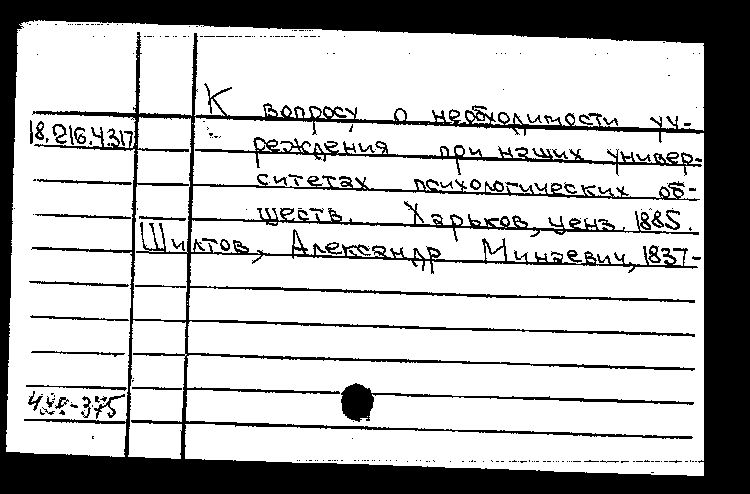 К вопросу о необходимости уч-
18.216.4.317
реждения при наших универ-
ситетах психологических об-
ществ. Харьков, ценз. 1885.
Шилтов, Александр Минаевич, 1837-